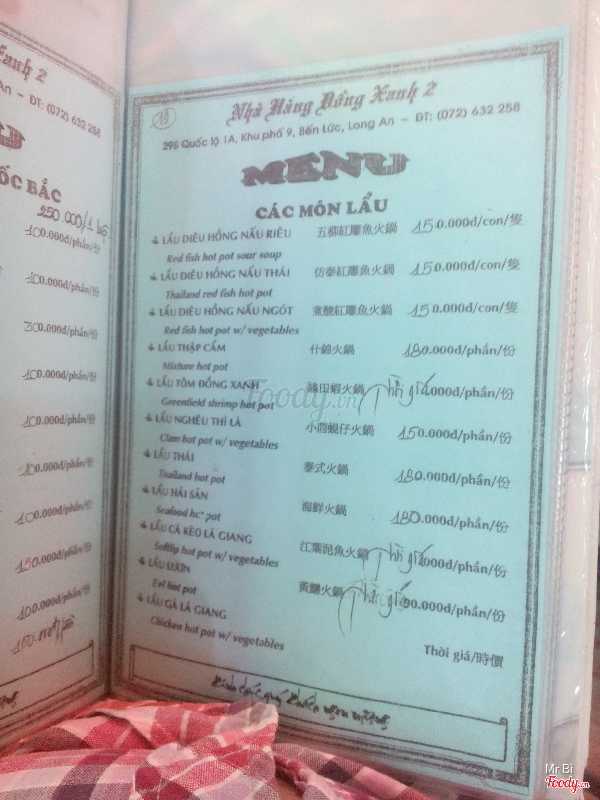 Xanh 2
An - ĐT: (072) 632 258
ỐC BẮC
250 000/1
100.000đ/phần/份
100.000đ/phần/份
300.000đ/phần/份
100.000đ/phần/份
100.000đ/phần/份
100.000đ/phần/份
100.000đ/phần/份
150.000đ/phần/份
100.000đ/phần/份
Nhà Hàng Đồng Xanh 2
295 Quốc lộ 1A, Khu phố 9, Bến Lức, Long An - ĐT: (072) 632 258
MENU
CÁC MÓN LẨU
LẨU DIÊU HỒNG NẤU RIÊU 五柳紅鵰魚火鍋 150.000đ/con/隻
Red fish hot pot sour soup
LẨU DIÊU HỒNG NẤU THÁI 仿泰紅鵰魚火鍋 150.000đ/con/隻
Thailand red fish hot pot
LẨU DIÊU HỒNG NẤU NGÓT 紅鵰魚火鍋 150.000đ/con/隻
Red fish hot pot w/ vegetables
LẨU THẬP CẨM 什錦火鍋 180.000đ/phần/份
Mixture hot pot
LẨU TÔM ĐỒNG XANH 田蝦火鍋 Thời giá 000đ/phần/份
Greenfield shrimp hot pot
LẨU NGHÊU THÌ LÀ 小茴蜆仔火鍋 150.000đ/phần/份
Clam hot pot w/ vegetables
LẨU THÁI 泰式火鍋 180.000đ/phần/份
Thailand hot pot
LẨU HẢI SẢN 海鮮火鍋 180.000đ/phần/份
Seafood hot pot
LẨU CÁ KÈO LÁ GIANG 江葉泥魚火鍋 Thời giá 000đ/phần/份
hot pot w/ vegetables
LẨU LƯƠN 黃鱔火鍋 Thời giá 00.000đ/phần/份
Eel hot pot
LẨU GÀ LÁ GIANG Thời giá/時價
Chicken hot pot w/ vegetables
Kính chúc quý khách ngon miệng
Foody.vn
Mr Bi
Foody.vn